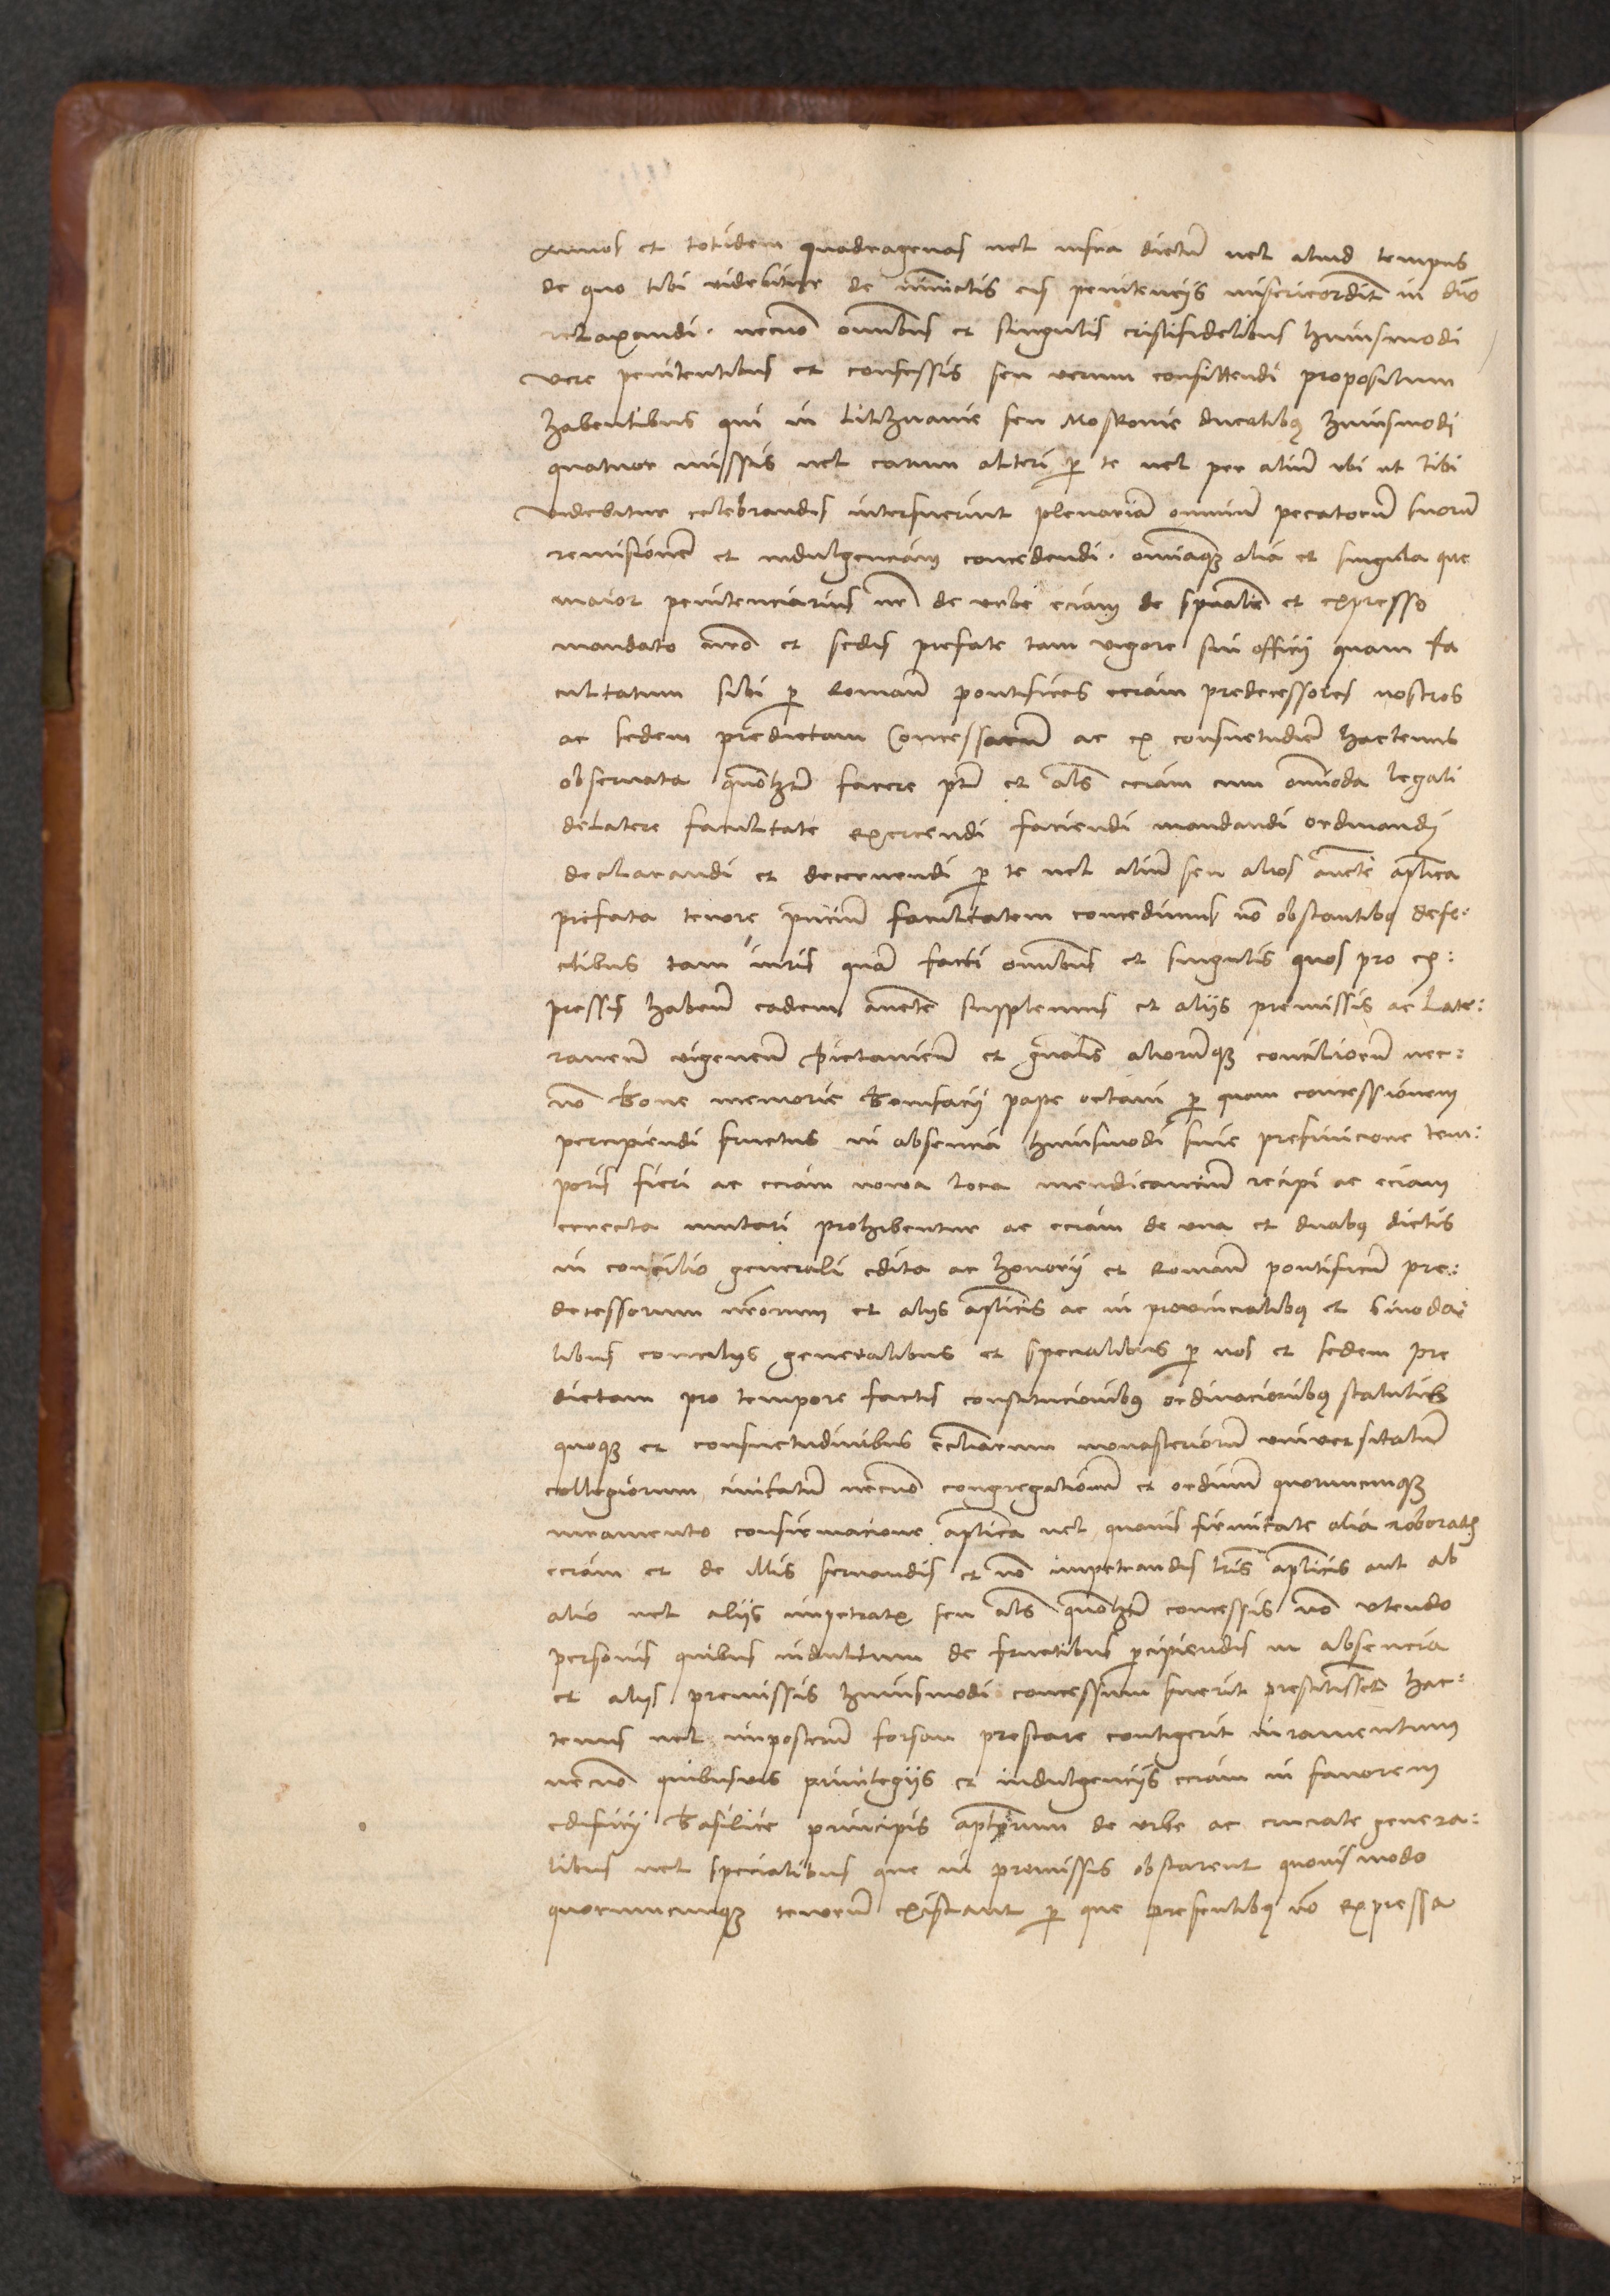 Annos et totidem quadragenas vel infra dictum vel aliud tempus
de quo tibi videbitur de iniunctis eis penitencijs misericordit in dno
relaxandi. necno omnibus et singulis cristifidelibus huiusmodi
vere penitentibus et confessis seu verum confittendi propositum
habentibus qui in litthuanie seu Moskouie ducatibq huiusmodi
quatuor missis vel earum alteri p te vel per aliu vbi vt tibi
videbitur celebrandis interfuerint plenaria omniu peccatoru suoru
remisione et indulgenciam concedendi. omniaqz alia et singula que
maior penitenciarius nr de vrbe eciam de spuali et expresso
mandato nro et sedis prefate tam vigore sui officij quam fa
cultatum sibi p Roman pontifices eciam predecessores nostros
ac sedem predictam Concessaru ac ex consuetudie hactenus
obseruata quolzt facere pt et als eciam cum omnioda legati
delatere facultate exercendi faciendi mandandi ordinandj
declarandi et decernendi p te vel aliu seu alios aucte aplica
prefata tenore pnciu facultatem concedimus no obstantibq defe:
ctibus tam iuris qua facti omnibus et singulis quos pro ex:
pressis haben eadem aucte supplemus et alijs premissis ac Late:
ranen vigenen Pictauien et gnalis aliorumqz concilioru nec:
no Bone memorie Bonifacij pape octaui p quam concessionem
percipiendi fructus in absencia huiusmodi sine prefinicione tem:
poris fieri ac eciam noua loca mendicanciu recipi ac eciam
erecta mutari prohibentur ac eciam de vna et duabq dietis
in consilio generali edita ac honorij et Roman pontificu pre:
decessorum nrorum et alijs aplicis ac in prouincialibq et sinoda:
libus concilijs generalibus et specialibus p nos et sedem pre
dictam pro tempore factis constitucionibq ordinacionibq statutis
quoqz et consuetudinibus ecclarum monasterioru vniuersitatu
collegiorum ciuitatu necno congregationu et ordinu quorumcumqz
iuramento confirmacione aplica vel quauis firmitate alia roboratis
eciam et de illis seruandis et no impetrandis lris aplicis aut ab
alio vel alijs impetratis seu als quolzt concessis no vtendo
personis quibus indultum de fructibus pcipiendis in absencia
et alijs premissis huiusmodi concessum fuerit prestitisset hac:
tenus vel inposteru forsan prestare contigerit iuramentum
necno quibusuis priuilegijs et indulgencijs eciam in fauorem
edificij Basilice principis aplorum de vrbe ac cruciate genera:
libus vel specialibus que in premissis obstarent quouismodo
quorumcumqz tenoru existant p que presentibq no expressa